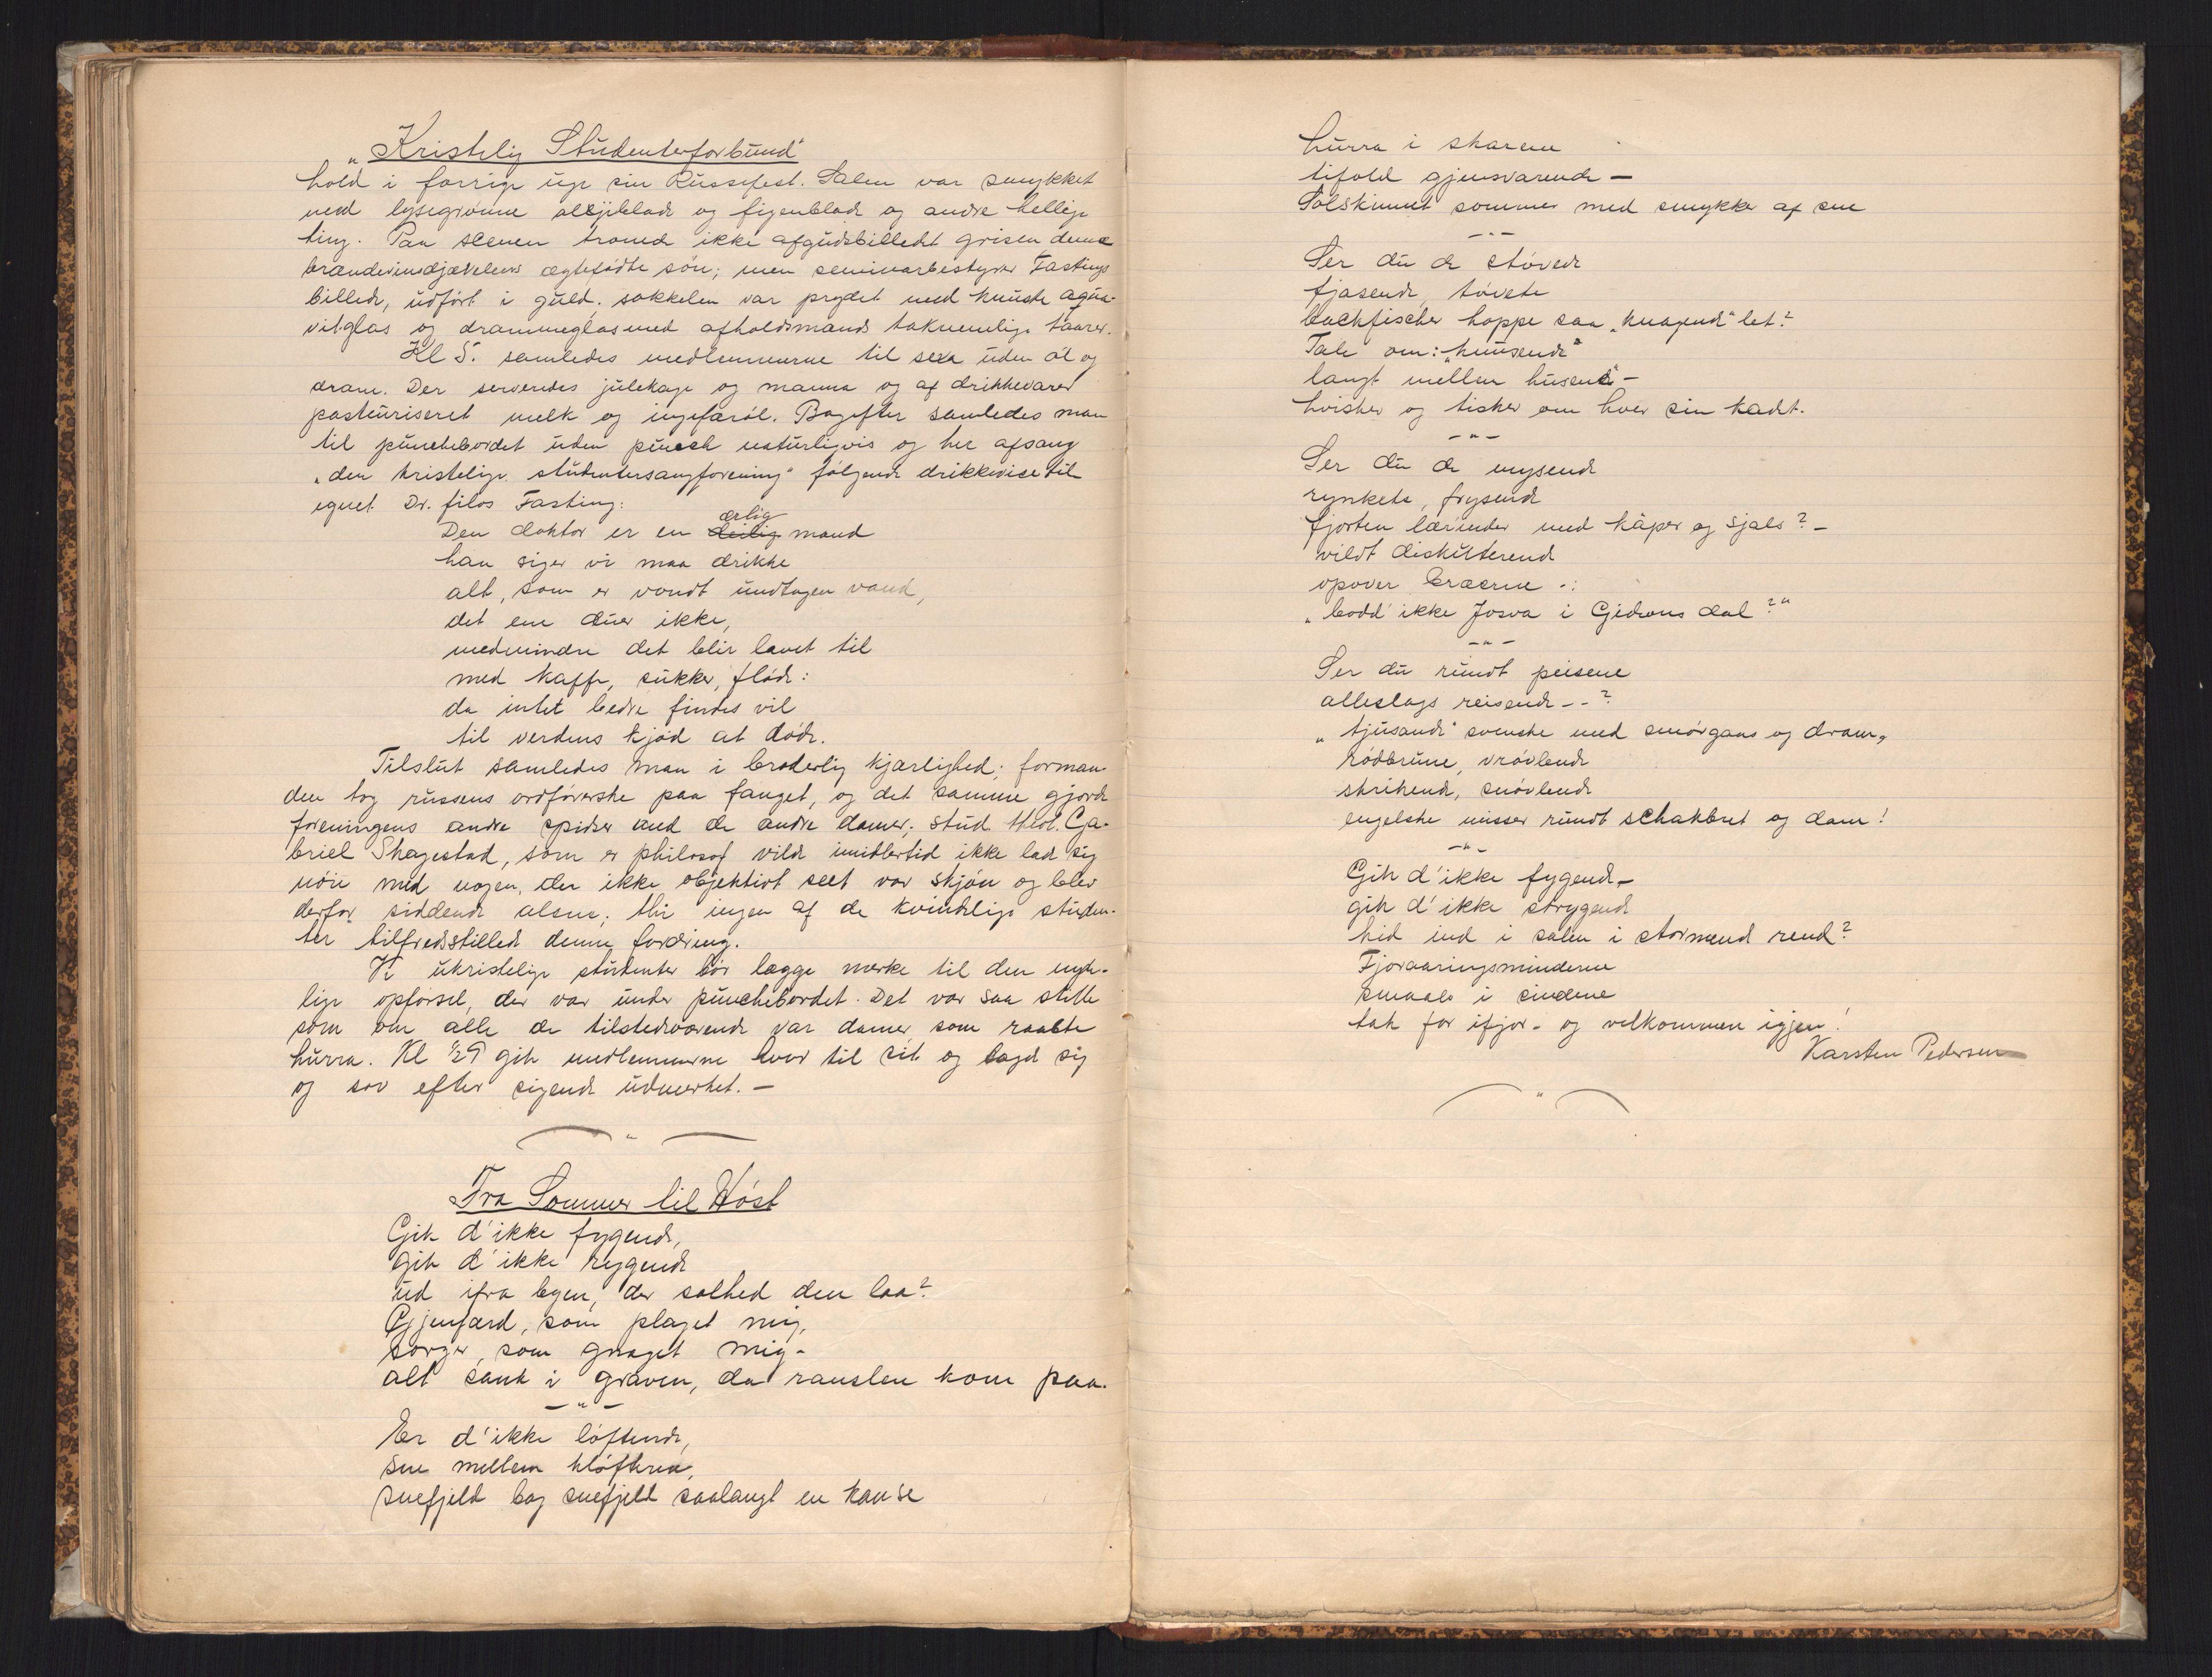 „Kristelig Studenterforbund"
hold i forrige uge sin Russefest. Salen var smykket
med lysegrønne oljeblade og figenblade og andre hellige
ting. Paa scenen tronede ikke afgudsbilledet grisen denne
brændevinsdjævelens ægtefødte søn; men seminarbestyrer Fastings
billede, udført i guld. sokkelen var prydet med knuste aqua-
vitglas og drammeglas med afholdsmænds taknemlige taarer.
Kl 5. samledes medlemmerne til sexa uden øl og
dram. Der serveredes julekage og manna og af drikkevarer
pasteuriseret melk og ingefærøl. Bagefter samledes man
til punchebordet uden punch naturligvis og her afsang
„den kristelige studentersangforening" følgende drikkevise til
egnet Dr. filos Fasting:
Den doktor er en deilig ærlig mand
han siger vi maa drikke
alt, som er vondt undtagen vand,
det ene duer ikke,
medmindre det blir lavet til
med kaffe, sukker, fløde:
da intet bedre findes vil
til verdens kjød at døde.
Tilslut samledes man i broderlig kjærlighed; forman-
den tog russens ordførerske paa fanget, og det samme gjorde
foreningens andre spidser med de andre damer. Stud. theol. Ga-
briel Skagestad, som er philosof vilde imidlertid ikke lade sig
nøie med nogen, der ikke objektivt seet var skjøn og blev
derfor siddende alene; thi ingen af de kvindelige studen-
ter tilfredsstillede denne fordring.
Vi ukristelige studenter bør lægge merke til den nyde-
lige opførsel, der var under punchebordet. Det var saa stille
som om alle de tilstedeværende var damer som raabte
hurra. Kl ½9 gik medlemmerne hver til sit og lagde sig
og sov efter sigende udmerket. —
Fra Sommer til Høst
Gik d'ikke fygende,
gik d'ikke rygende
ud ifra byen, der solhed den laa?
Gjenfærd, som plaget mig,
sorger, som gnaget mig-
alt sank i graven, da ranslen kom paa.
— " —
Er d'ikke løftende,
sne mellem kløftene,
snefjeld bag snefjeld saalangt en kan se
hurra i skarene
tifold gjensvarende —
Solskinnet sommer med smykker af sne
— " —
Ser du de støvede
fjasende, tøvete
backfischer hoppe saa „knagende" let?
Tale om: „knusende"
langt mellem husene —
hvisker og tisker om hver sin kadet.
— " —
Ser du de mysende
rynkete, frysende
fjorten lærinder med kåper og sjals? —
vildt diskuterende
opover bræerne -:
„bodd' ikke Josva i Gideons dal?"
— " —
Ser du rundt peisene
alleslags reisende - - ?
„tjusande" svenske med smörgaas og dram,
rødbrune, vrøvlende
skrikende, snøvlende
engelske misser rundt schakbret og dam!
— " —
Gik d'ikke fygende —
gik d'ikke strygende
hid ind i salen i stormende rend?
Fjoraaringsminderne
smaalo i sindene
tak for ifjor - og velkommen igjen!
Karsten Pedersen
"